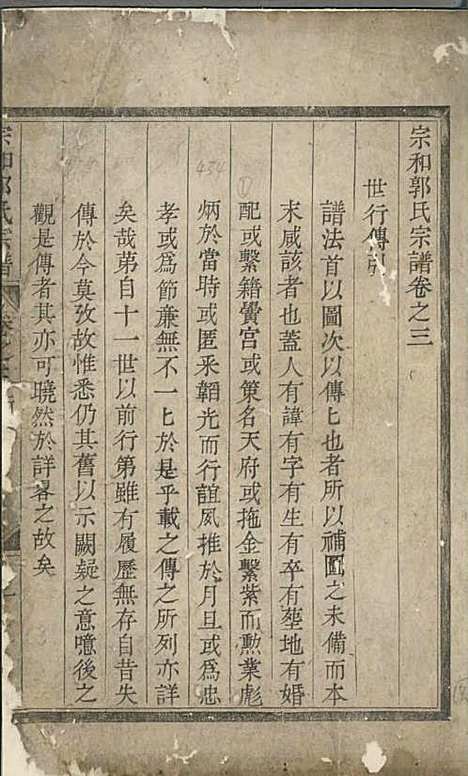 宗和郭氏宗譜卷之三
世行傳引
譜法首以圖次以傳匕也者所以補圖之未備而本
末咸該者也蓋人有諱有字有生有卒有塟地有婚
配或繫籍黌宫或策名天府或拖金繫紫而勲業彪
炳於當時或匿釆韜光而行誼夙推於月旦或為忠
孝或為節亷無不一匕於是乎載之傳之所列亦詳
矣哉苐自十一世以前行第雖有履歷無存自昔失
傳於今莫攷故惟悉仍其舊以示闕疑之意噫後之
觀是傳者其亦可曉然於詳畧之故矣
宗和郭氏宗譜
434
①